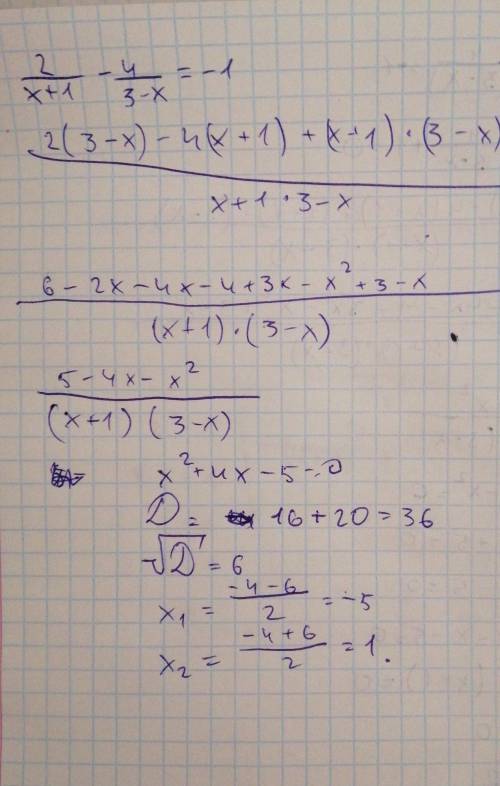 2/(x+1) - 4/(3-x) = -1
2(3-x) - 4(x+1) + (x+1)·(3-x)
x+1·3-x
6-2x-4x-4+3x-x²+3-x
(x+1)·(3-x)
5-4x-x²
(x+1)(3-x)
x²+4x-5=0
D= 16+20=36
√D=6
x₁ = (-4-6)/2 = -5
x₂ = (-4+6)/2 = 1.